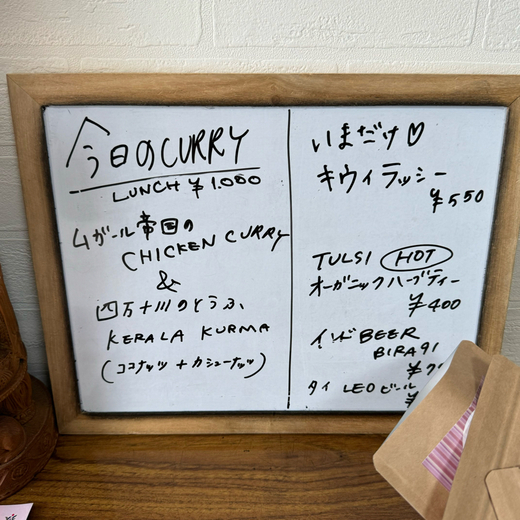 今日のCURRY
LUNCH ¥1.000
ムガール帝国の
CHICKEN CURRY
&
四万十川のとうふ
KERALA KURMA
(ココナッツ + カシューナッツ)
いまだけ♡
キウィラッシー
¥550
TULSI HOT
オーガニックハーブティー
¥400
インドBEER
BIRA91
¥7
タイ LEOビール
¥